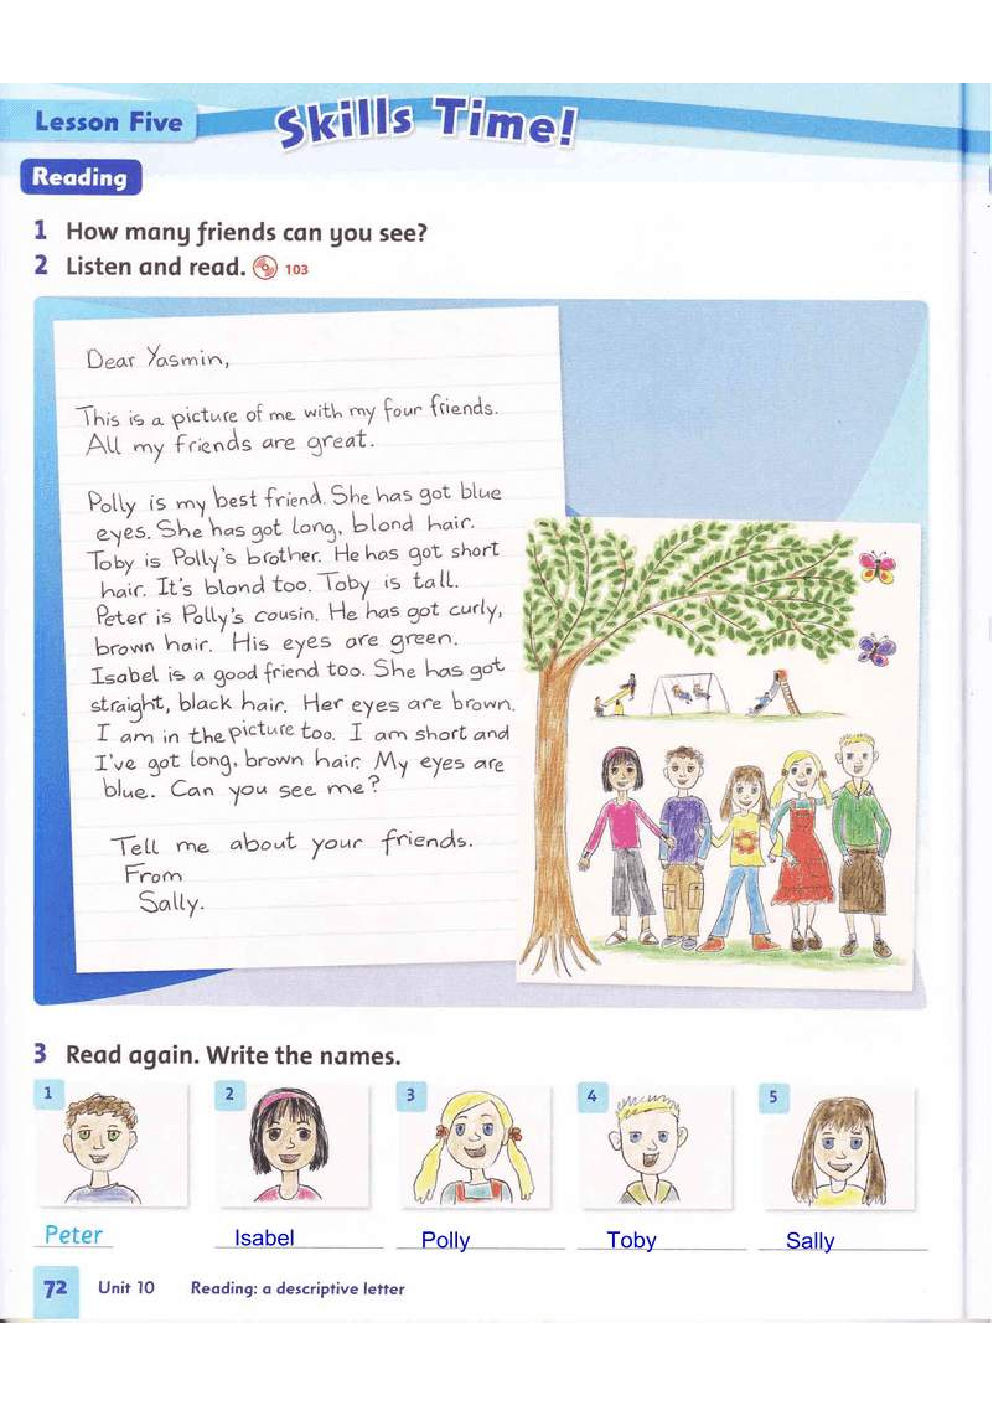 Lesson Five
Skills Time!
Reading
1 How many friends can you see?
2 Listen and read. 103
Dear Yasmin,
This is a picture of me with my four friends.
All my friends are great.
Polly is my best friend. She has got blue
eyes. She has got long, blond hair.
Toby is Polly's brother. He has got short
hair. It's blond too. Toby is tall.
Peter is Polly's cousin. He has got curly,
brown hair. His eyes are green.
Isabel is a good friend too. She has got
straight, black hair. Her eyes are brown.
I am in the picture too. I am short and
I've got long, brown hair. My eyes are
blue. Can you see me?
Tell me about your friends.
From
Sally.
3 Read again. Write the names.
1 2 3 4 5
Peter Isabel Polly Toby Sally
72 Unit 10 Reading: a descriptive letter